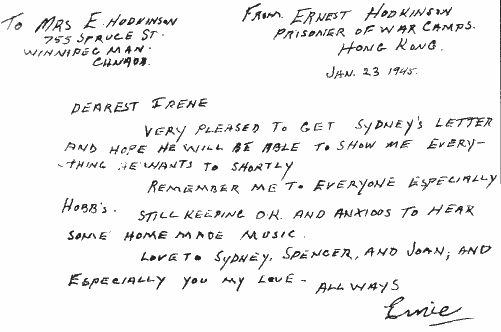 TO MRS E. HODKINSON
755 SPRUCE ST.
WINNIPEG MAN.
CANADA.
FROM ERNEST HODKINSON
PRISONER OF WAR CAMPS.
HONG KONG.
JAN. 23 1945.
DEAREST IRENE
VERY PLEASED TO GET SYDNEY'S LETTER
AND HOPE HE WILL BE ABLE TO SHOW ME EVERY-
-THING HE WANTS TO SHORTLY
REMEMBER ME TO EVERYONE ESPECIALLY
HOBB'S. STILL KEEPING O.K. AND ANXIOUS TO HEAR
SOME HOME MADE MUSIC.
LOVE TO SYDNEY, SPENCER, AND JOAN, AND
ESPECIALLY YOU MY LOVE - ALLWAYS
Ernie